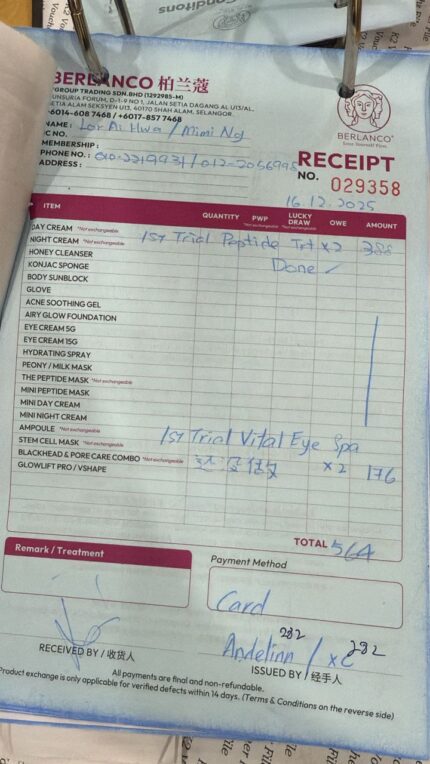 Conditions
BERLANCO 柏兰蔻
GROUP TRADING SDN.BHD (1292985-M)
UNSURIA FORUM, D-1-9 NO 1, JALAN SETIA DAGANG AL U13/AL,
SETIA ALAM SEKSYEN U13, 40170 SHAH ALAM, SELANGOR.
+6014-608 7468 / +6017-857 7468
BERLANCO®
NAME: Lor Ai Hwa / Mimi Ng
IC NO.
MEMBERSHIP:
PHONE NO.: 010-2219931 / 012-2056998
ADDRESS:
RECEIPT
NO. 029358
16.12.2025
ITEM QUANTITY PWP *Not exchangeable LUCKY DRAW *Not exchangeable OWE AMOUNT
DAY CREAM *Not exchangeable
NIGHT CREAM *Not exchangeable 1st Trial Peptide Trt x2 388
HONEY CLEANSER Done ✓
KONJAC SPONGE
BODY SUNBLOCK
GLOVE
ACNE SOOTHING GEL
AIRY GLOW FOUNDATION
EYE CREAM 5G
EYE CREAM 15G
HYDRATING SPRAY
PEONY / MILK MASK
THE PEPTIDE MASK *Not exchangeable
MINI PEPTIDE MASK
MINI DAY CREAM
MINI NIGHT CREAM
AMPOULE *Not exchangeable
STEM CELL MASK *Not exchangeable 1st Trial Vital Eye Spa
BLACKHEAD & PORE CARE COMBO *Not exchangeable 还没做 x2 176
GLOWLIFT PRO / VSHAPE
TOTAL 564
Remark / Treatment
Payment Method
Card
282 282
RECEIVED BY / 收货人
ISSUED BY / 经手人
All payments are final and non-refundable.
Product exchange is only applicable for verified defects within 14 days. (Terms & Conditions on the reverse side)